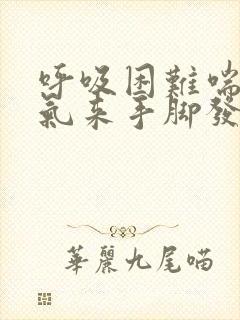 呼吸困難喘
氣来手脚發
華麗九尾喵